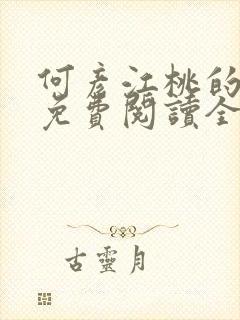 何彥江桃的
免費閱讀全
古靈月